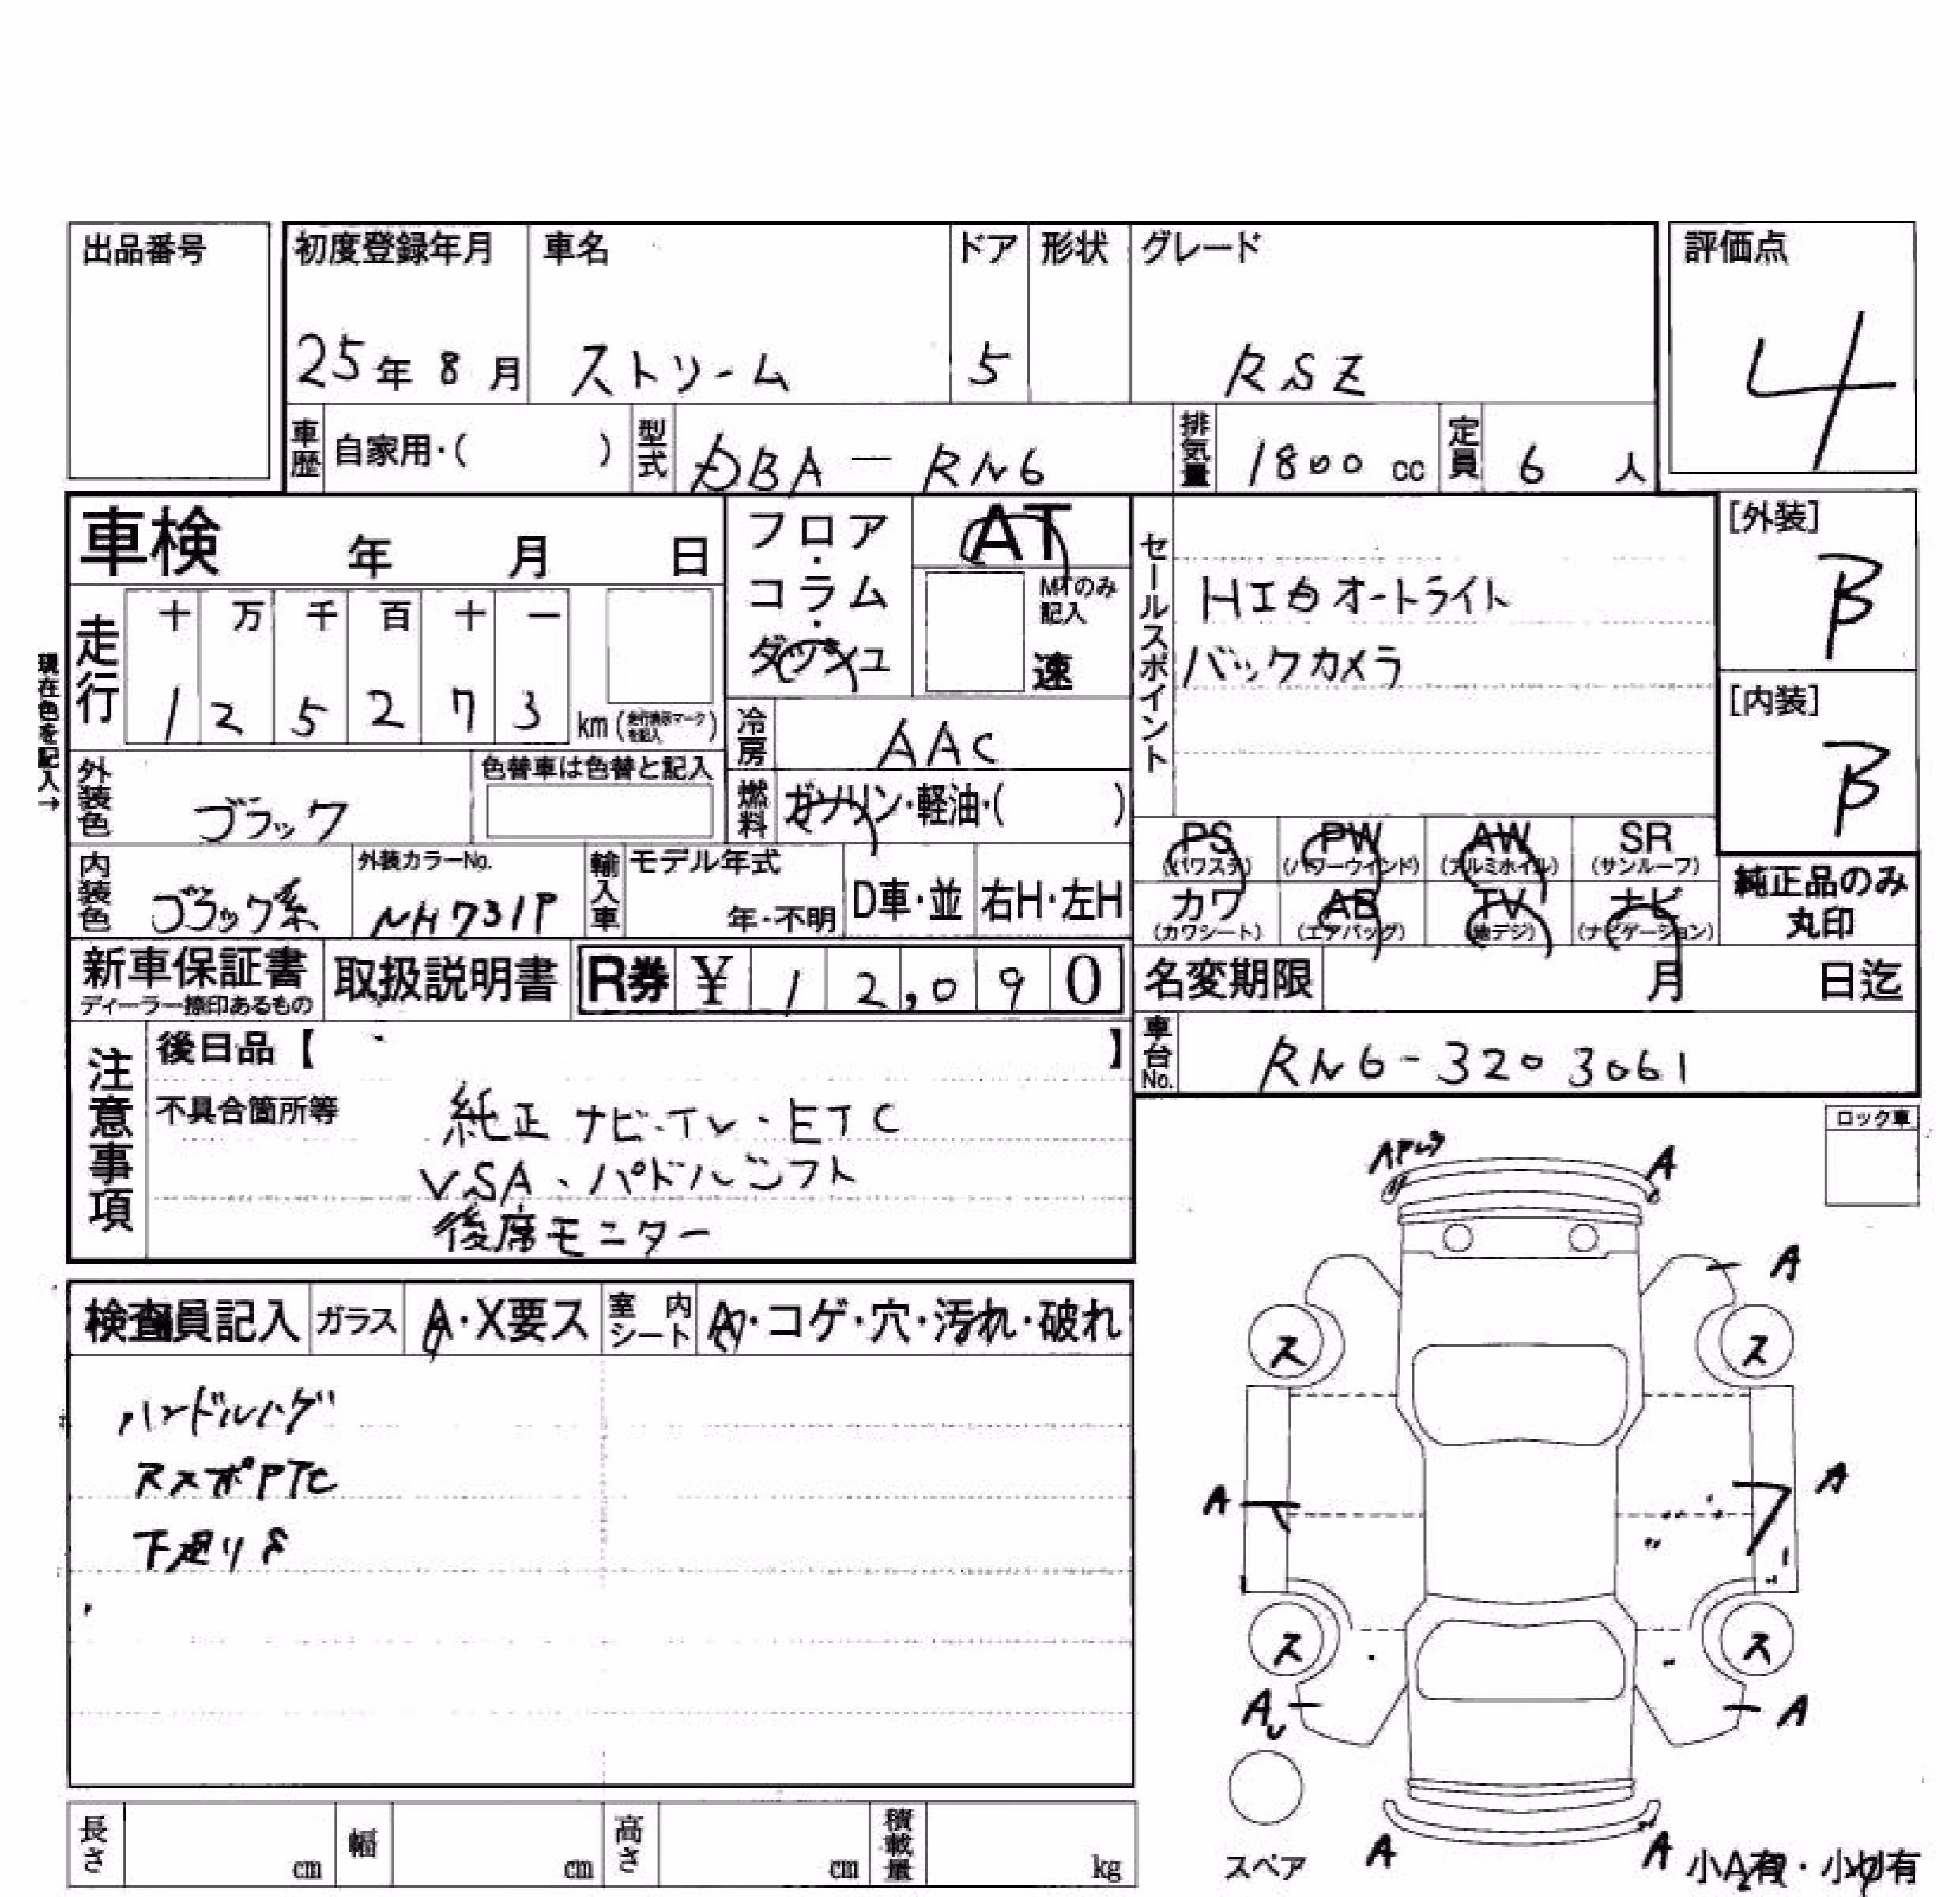 出品番号
初度登録年月 車名 ドア 形状 グレード 評価点
25年 8月 ストリーム 5 RSZ 4
車歴 自家用・( ) 型式 DBA-RN6 排気量 1800 cc 定員 6 人
車検 年 月 日
フロア・コラム・ダッシュ
AT
MTのみ記入
速
セールスポイント
HID オートライト
バックカメラ
[外装]
B
[内装]
B
現在色を記入→
走行 十 万 千 百 十 一
1 2 5 2 7 3 km (走行表示マークを記入)
冷房 AAC
外装色 ブラック 色替車は色替と記入
燃料 ガソリン・軽油・( )
PS (パワステ) PW (パワーウインド) AW (アルミホイル) SR (サンルーフ)
カワ (カワシート) AB (エアバッグ) TV (地デジ) ナビ (ナビゲーション)
純正品のみ丸印
内装色 ブラック系 外装カラーNo. NH731P 輸入車 モデル年式 年・不明 D車・並 右H・左H
新車保証書 ディーラー捺印あるもの 取扱説明書 R券 ¥ 12,090
名変期限 月 日迄
車台No. RN6-3203061
注意事項
後日品【 】
不具合箇所等
純正 ナビ・TV・ETC
VSA、パドルシフト
後席モニター
ロック車
検査員記入 ガラス A・X要ス 室内シート A・コゲ・穴・汚れ・破れ
ハンドルハゲ
下廻りS
A
A
ス ス
A
A
ス ス
A
A
スペア
A
A
小A有・小U有
長さ cm 幅 cm 高さ cm 積載量 kg